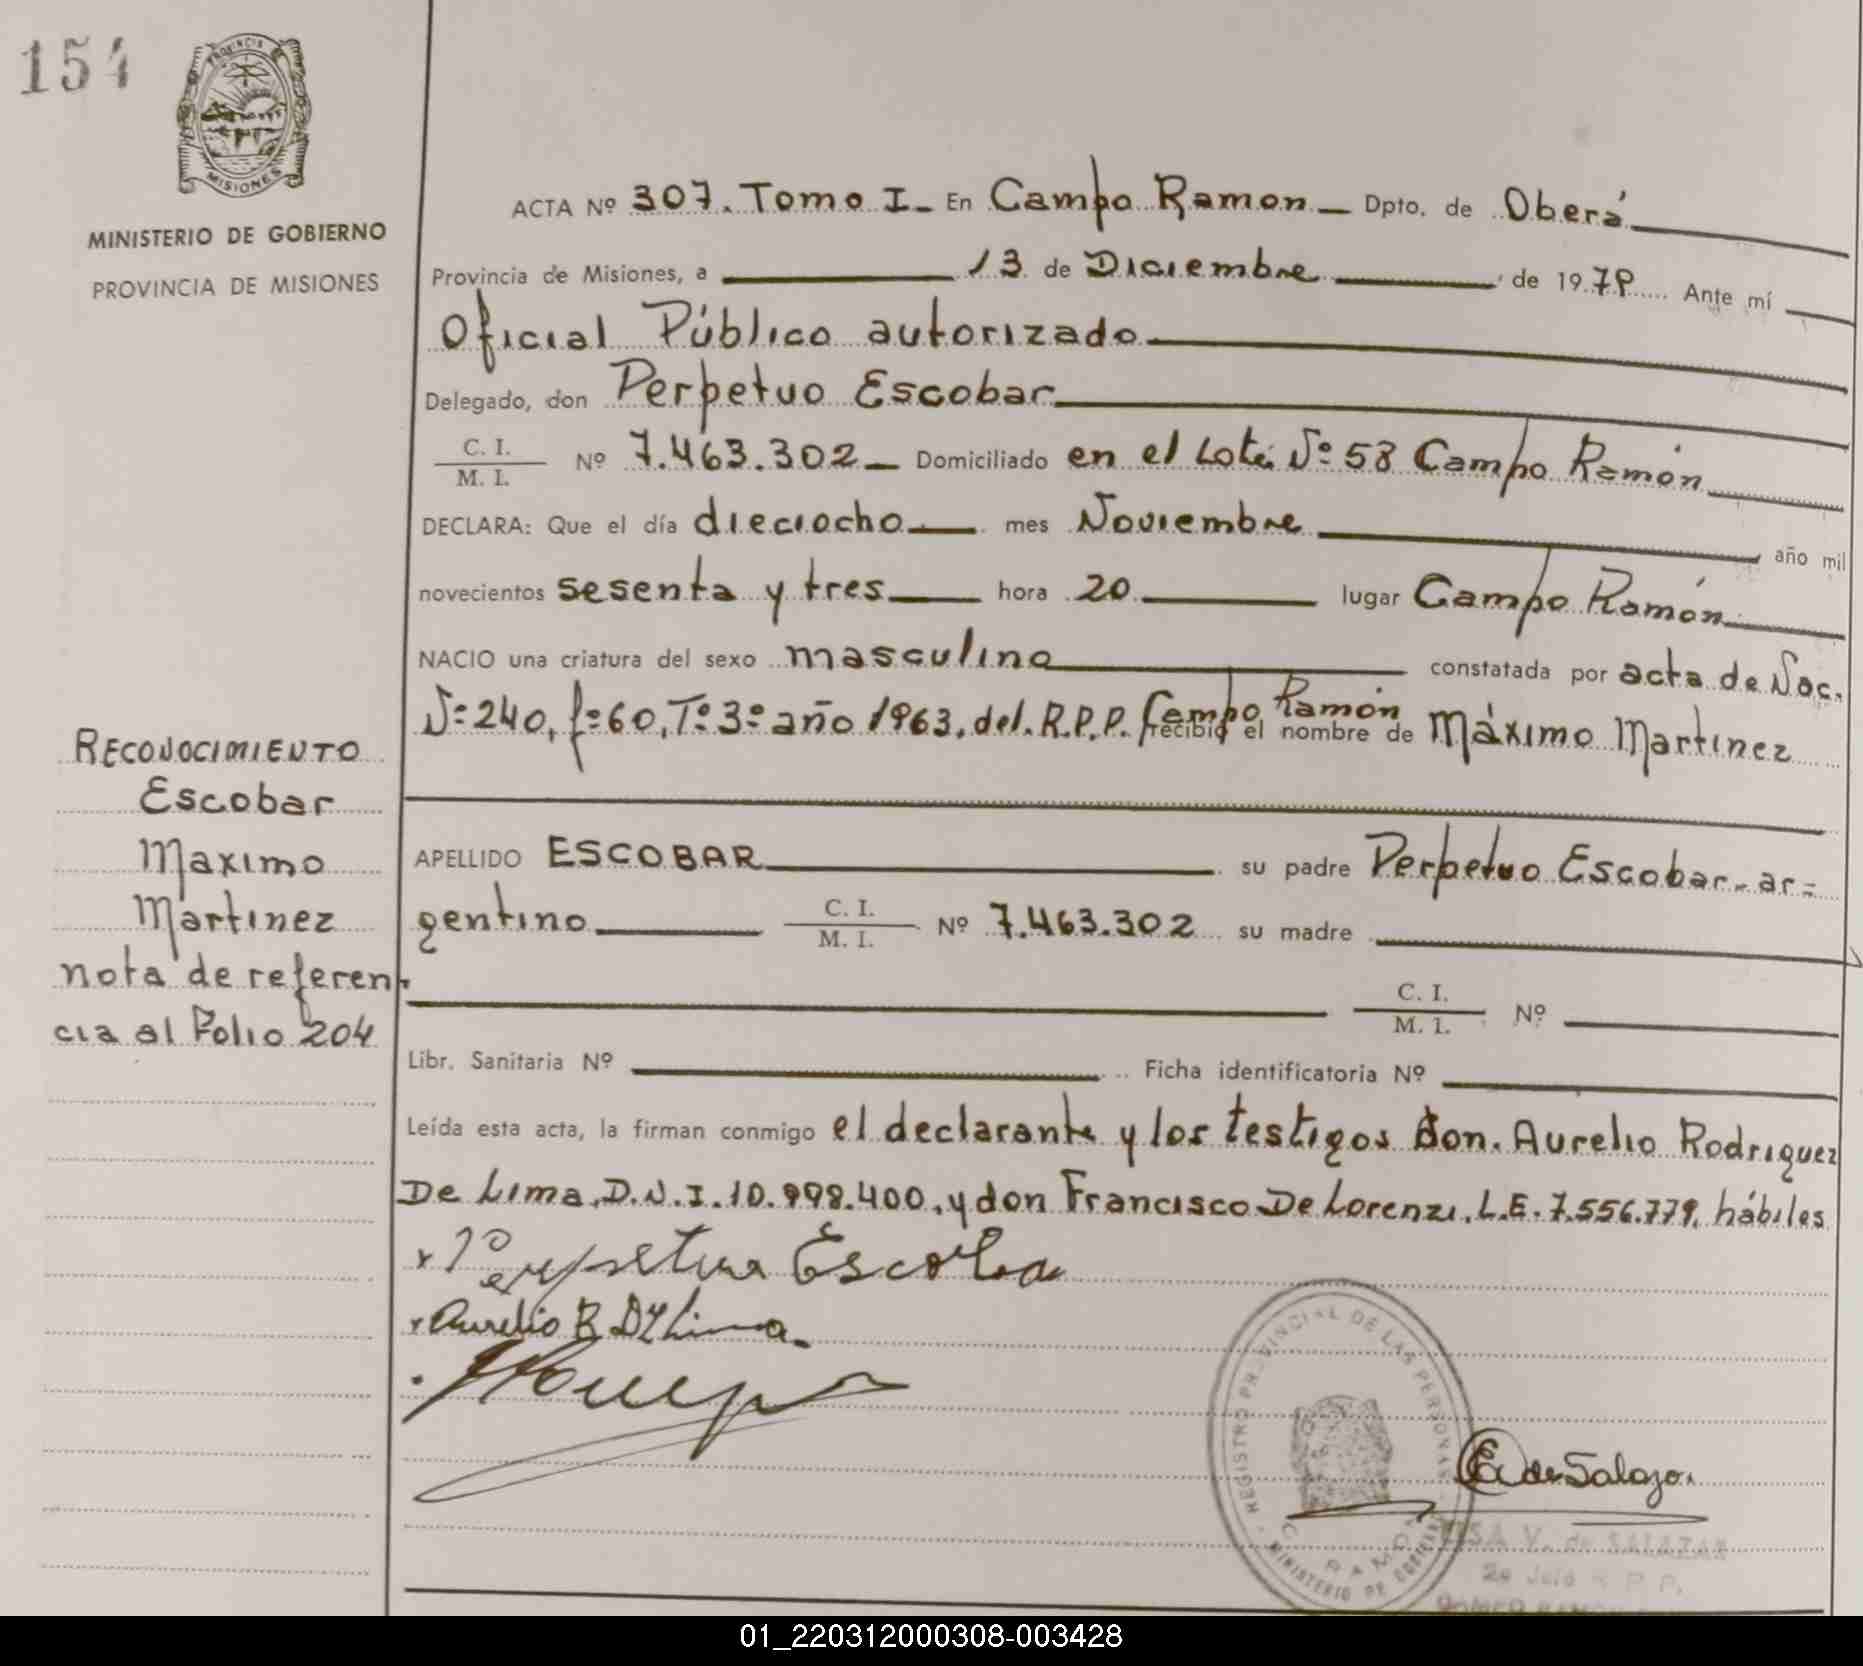 154
PROVINCIA DE
MISIONES
MINISTERIO DE GOBIERNO
PROVINCIA DE MISIONES
ACTA Nº 307. Tomo I. En Campo Ramon Dpto. de Oberá
Provincia de Misiones, a 13 de Diciembre de 1979 Ante mí
Oficial Público autorizado
Delegado, don Perpetuo Escobar
C. I.
M. I. Nº 7.463.302 Domiciliado en el Lote Nº 58 Campo Ramón
DECLARA: Que el día dieciocho mes Noviembre año mil
novecientos sesenta y tres hora 20 lugar Campo Ramón
NACIO una criatura del sexo masculino constatada por acta de Nac.
Nº 240, fº 60, Tº 3º año 1963, del R.P.P. Campo Ramón recibió el nombre de Máximo Martinez
RECONOCIMIENTO
Escobar
Maximo
Martinez
nota de referen
cia al Folio 204
APELLIDO ESCOBAR su padre Perpetuo Escobar - ar=
gentino C. I.
M. I. Nº 7.463.302 su madre
C. I.
M. I. Nº
Libr. Sanitaria Nº Ficha identificatoria Nº
Leída esta acta, la firman conmigo el declarante y los testigos Don. Aurelio Rodriguez
De Lima, D.N.I. 10.998.400, y don Francisco De Lorenzi, L.E. 7.556.779, hábiles
Perpetuo Escobar
Aurelio R D Lima
REGISTRO PROVINCIAL DE LAS PERSONAS
MINISTERIO DE GOBIERNO
E de Salazar
ELSA V. de SALAZAR
R. P. P.
CAMPO RAMON
01_220312000308-003428